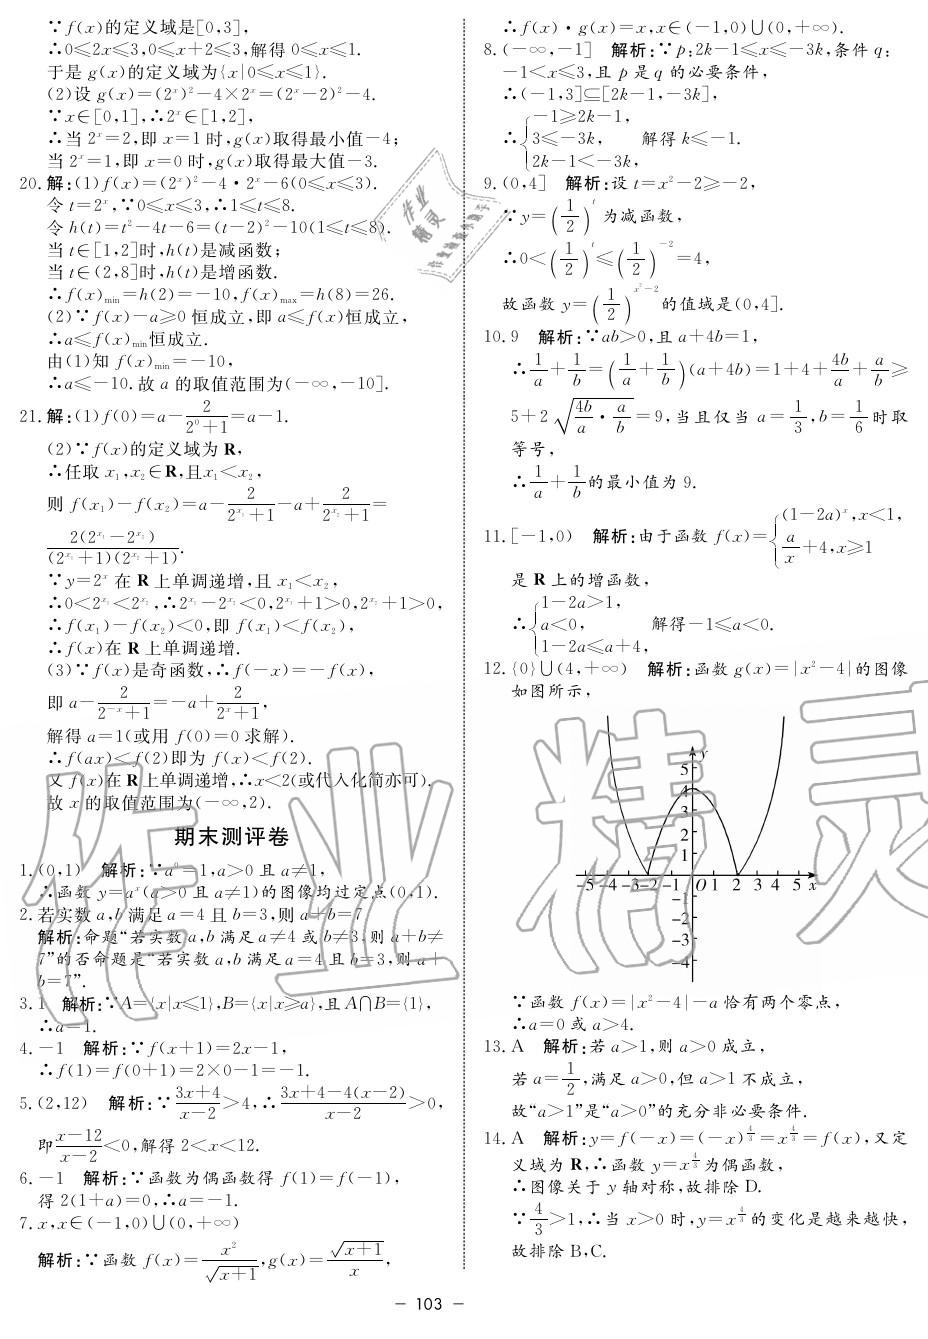 ∵f(x)的定义域是[0,3],
∴0≤2x≤3,0≤x+2≤3,解得 0≤x≤1.
于是 g(x)的定义域为{x|0≤x≤1}.
(2)设 g(x)=(2ˣ)²-4×2ˣ=(2ˣ-2)²-4.
∵x∈[0,1],∴2ˣ∈[1,2],
∴当 2ˣ=2,即 x=1 时,g(x)取得最小值-4;
当 2ˣ=1,即 x=0 时,g(x)取得最大值-3.
20.解:(1)f(x)=(2ˣ)²-4·2ˣ-6(0≤x≤3).
令 t=2ˣ,∵0≤x≤3,∴1≤t≤8.
令 h(t)=t²-4t-6=(t-2)²-10(1≤t≤8).
当 t∈[1,2]时,h(t)是减函数;
当 t∈(2,8]时,h(t)是增函数.
∴f(x)min=h(2)=-10,f(x)max=h(8)=26.
(2)∵f(x)-a≥0 恒成立,即 a≤f(x)恒成立,
∴a≤f(x)min恒成立.
由(1)知 f(x)min=-10,
∴a≤-10.故 a 的取值范围为(-∞,-10].
21.解:(1)f(0)=a-2/(2⁰+1)=a-1.
(2)∵f(x)的定义域为 R,
∴任取 x₁,x₂∈R,且x₁<x₂,
则 f(x₁)-f(x₂)=a-2/(2^x₁+1)-a+2/(2^x₂+1)=
2(2^x₁-2^x₂)/((2^x₁+1)(2^x₂+1)).
∵y=2ˣ 在 R 上单调递增,且 x₁<x₂,
∴0<2^x₁<2^x₂,∴2^x₁-2^x₂<0,2^x₁+1>0,2^x₂+1>0,
∴f(x₁)-f(x₂)<0,即 f(x₁)<f(x₂),
∴f(x)在 R 上单调递增.
(3)∵f(x)是奇函数,∴f(-x)=-f(x),
即 a-2/(2^-x+1)=-a+2/(2ˣ+1),
解得 a=1(或用 f(0)=0 求解).
∴f(ax)<f(2)即为 f(x)<f(2).
又 f(x)在 R 上单调递增,∴x<2(或代入化简亦可).
故 x 的取值范围为(-∞,2).
期末测评卷
1.(0,1) 解析:∵a⁰=1,a>0 且 a≠1,
∴函数 y=aˣ(a>0 且 a≠1)的图像均过定点(0,1).
2.若实数 a,b 满足 a=4 且 b=3,则 a+b=7
解析:命题“若实数 a,b 满足 a≠4 或 b≠3,则 a+b≠
7”的否命题是“若实数 a,b 满足 a=4 且 b=3,则 a+
b=7”.
3.1 解析:∵A={x|x≤1},B={x|x≥a},且 A∩B={1},
∴a=1.
4.-1 解析:∵f(x+1)=2x-1,
∴f(1)=f(0+1)=2×0-1=-1.
5.(2,12) 解析:∵(3x+4)/(x-2)>4,∴(3x+4-4(x-2))/(x-2)>0,
即(x-12)/(x-2)<0,解得 2<x<12.
6.-1 解析:∵函数为偶函数得 f(1)=f(-1),
得 2(1+a)=0,∴a=-1.
7.x,x∈(-1,0)∪(0,+∞)
解析:∵函数 f(x)=x²/√(x+1),g(x)=√(x+1)/x,
∴f(x)·g(x)=x,x∈(-1,0)∪(0,+∞).
8.(-∞,-1] 解析:∵p:2k-1≤x≤-3k,条件 q:
-1<x≤3,且 p 是 q 的必要条件,
∴(-1,3]⊆[2k-1,-3k],
∴{-1≥2k-1,
3≤-3k, 解得 k≤-1.
2k-1<-3k,
9.(0,4] 解析:设 t=x²-2≥-2,
∵y=(1/2)^t 为减函数,
∴0<(1/2)^t≤(1/2)^-2=4,
故函数 y=(1/2)^(x²-2)的值域是(0,4].
10.9 解析:∵ab>0,且 a+4b=1,
∴1/a+1/b=(1/a+1/b)(a+4b)=1+4+4b/a+a/b≥
5+2√(4b/a·a/b)=9,当且仅当 a=1/3,b=1/6时取
等号,
∴1/a+1/b的最小值为 9.
11.[-1,0) 解析:由于函数 f(x)={(1-2a)ˣ,x<1,
a/x+4,x≥1
是 R 上的增函数,
∴{1-2a>1,
a<0, 解得-1≤a<0.
1-2a≤a+4,
12.{0}∪(4,+∞) 解析:函数 g(x)=|x²-4|的图像
如图所示,
y
5
4
3
2
1
-5 -4 -3 -2 -1 O 1 2 3 4 5 x
-1
-2
-3
-4
∵函数 f(x)=|x²-4|-a 恰有两个零点,
∴a=0 或 a>4.
13.A 解析:若 a>1,则 a>0 成立,
若 a=1/2,满足 a>0,但 a>1 不成立,
故“a>1”是“a>0”的充分非必要条件.
14.A 解析:y=f(-x)=(-x)^(4/3)=x^(4/3)=f(x),又定
义域为 R,∴函数 y=x^(4/3)为偶函数,
∴图像关于 y 轴对称,故排除 D.
∵4/3>1,∴当 x>0 时,y=x^(4/3)的变化是越来越快,
故排除 B,C.
- 103 -
作业精灵
作业
精灵